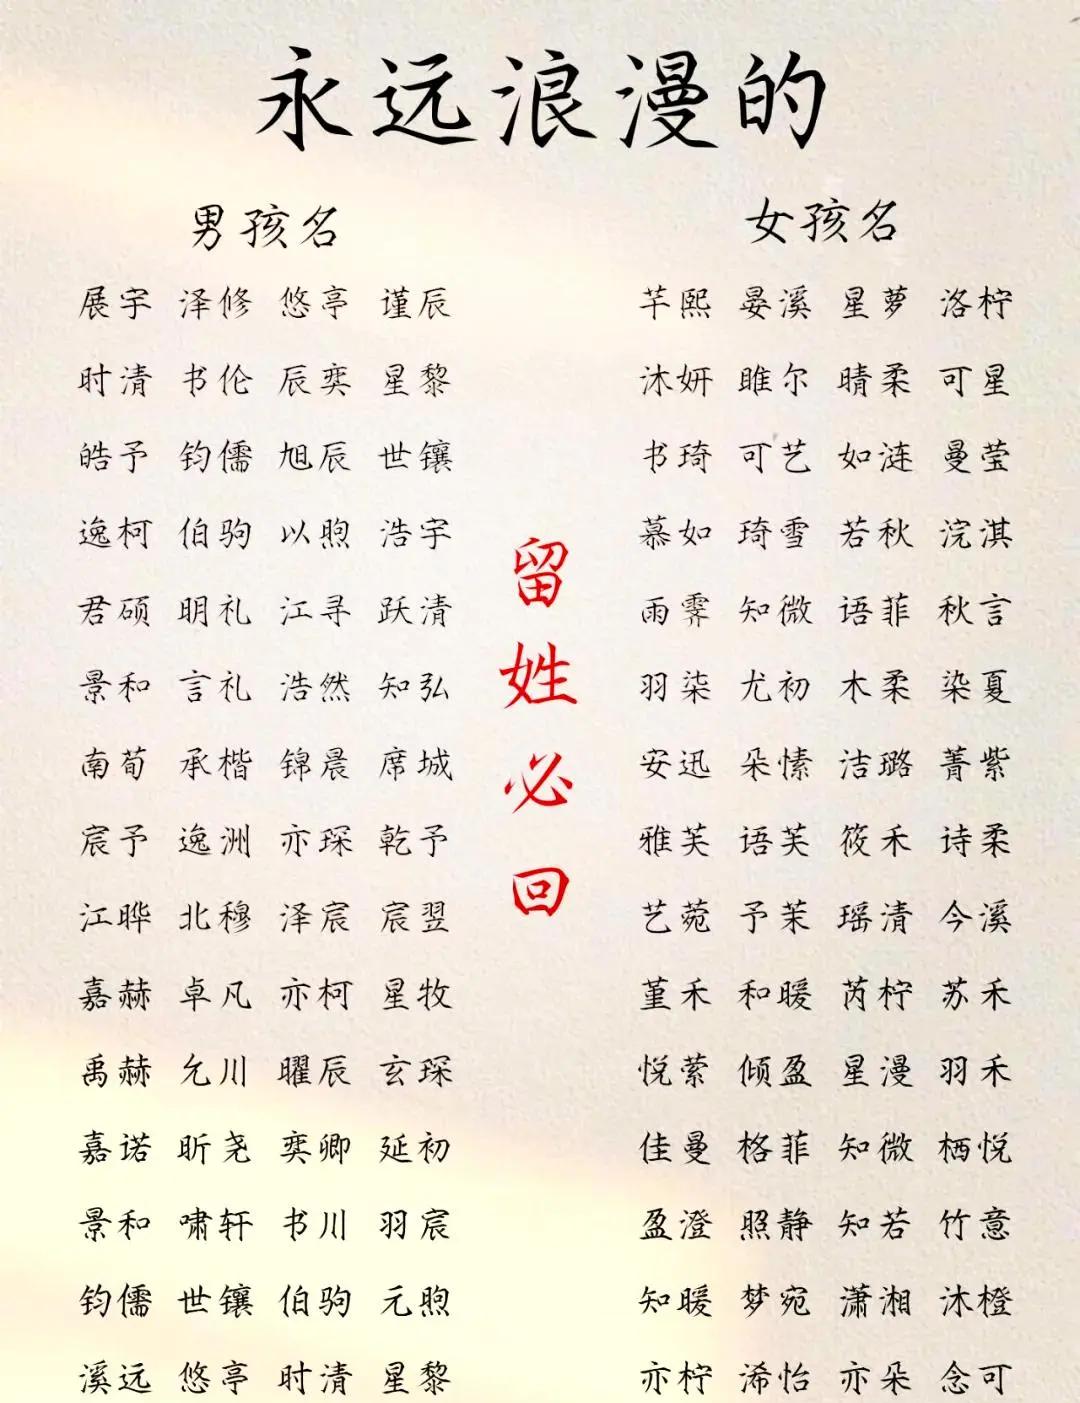 永远浪漫的
男孩名
展宇 泽修 悠亭 谨辰
时清 书伦 辰奕 星黎
皓予 钧儒 旭辰 世镶
逸柯 伯驹 以煦 浩宇
君硕 明礼 江寻 跃清
景和 言礼 浩然 知弘
南荀 承楷 锦晨 席城
宸予 逸洲 亦琛 乾予
江晔 北穆 泽宸 宸翌
嘉赫 卓凡 亦柯 星牧
禹赫 允川 曜辰 玄琛
嘉诺 昕尧 奕卿 延初
景和 啸轩 书川 羽宸
钧儒 世镶 伯驹 元煦
溪远 悠亭 时清 星黎
留姓必回
女孩名
芊熙 晏溪 星萝 洛柠
沐妍 雎尔 晴柔 可星
书琦 可艺 如涟 曼莹
慕如 琦雪 若秋 浣淇
雨霁 知微 语菲 秋言
羽柒 尤初 木柔 染夏
安迅 朵愫 洁璐 菁紫
雅芙 语芙 筱禾 诗柔
艺菀 予茉 瑶清 今溪
堇禾 和暖 芮柠 苏禾
悦萦 倾盈 星漫 羽禾
佳曼 格菲 知微 栖悦
盈澄 照静 知若 竹意
知暖 梦宛 潇湘 沐橙
亦柠 浠怡 亦朵 念可